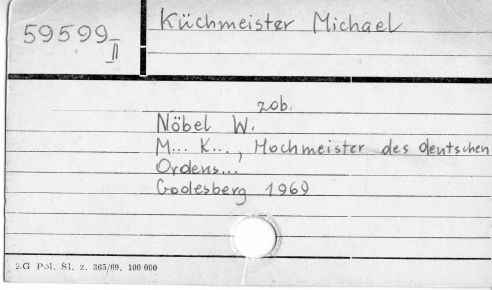 59599
II
Küchmeister Michael
zob.
Nöbel W.
M... K..., Hochmeister des deutschen
Ordens...
Godesberg 1969
ZG Pol. Śl. z. 365/69. 100 000